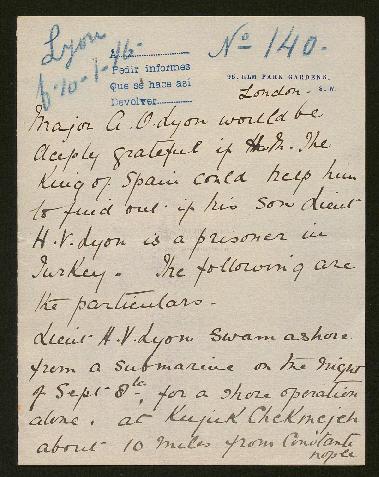 Lyon
Nº 140.
10-1-16-
A
Pedir informes
Que se hace así
Devolver
98, ELM PARK GARDENS,
London. S.W.
Major A. O. Lyon would be
deeply grateful if H. M. The
King of Spain could help him
to find out if his son Lieut
H. V. Lyon is a prisoner in
Turkey. The following are
the particulars.
Lieut H. V. Lyon swam ashore
from a submarine on the night
of Sept 8th, for a shore operation
alone. at Kujuk Chekmejeh
about 10 miles from Constanti
nople